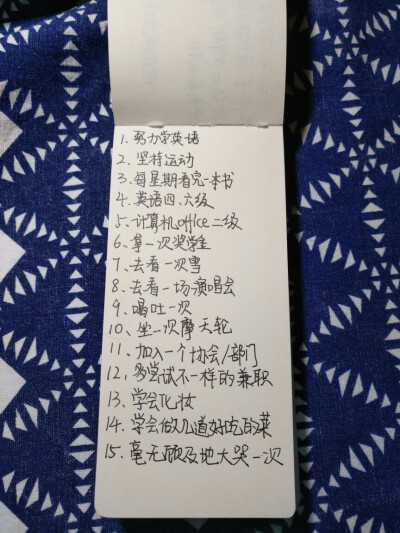 1. 努力学英语
2. 坚持运动
3. 每星期看完一本书
4. 英语四、六级
5. 计算机office二级
6. 拿一次奖学金
7. 去看一次雪
8. 去看一场演唱会
9. 喝吐一次
10. 坐一次摩天轮
11. 加入一个协会/部门
12. 多尝试不一样的兼职
13. 学会化妆
14. 学会做几道好吃的菜
15. 毫无顾及地大哭一次